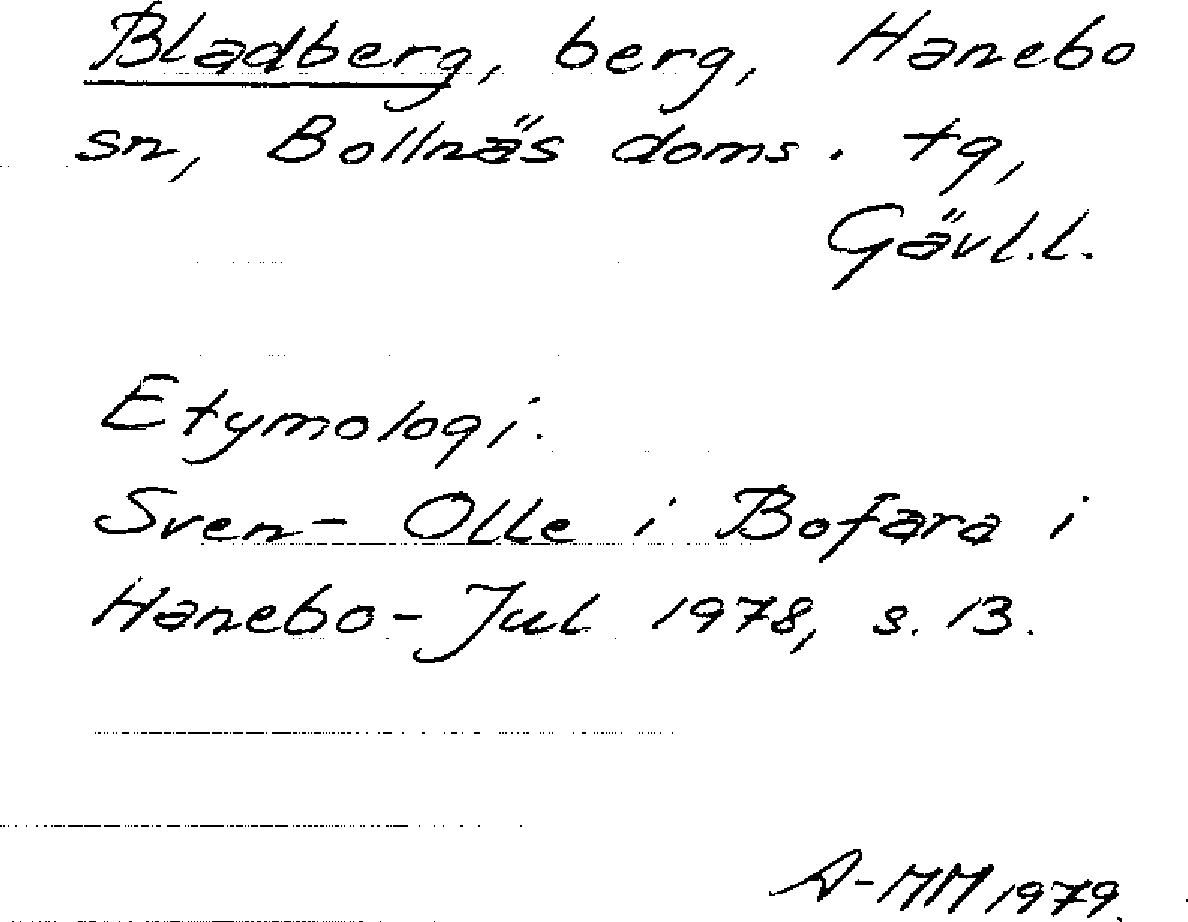 Bladberg, berg, Hanebo
sn, Bollnäs doms. tg,
Gävl.l.
Etymologi.
Sven-Olle i Bofara i
Hanebo-Jul 1978, s. 13.
A-MM 1979.